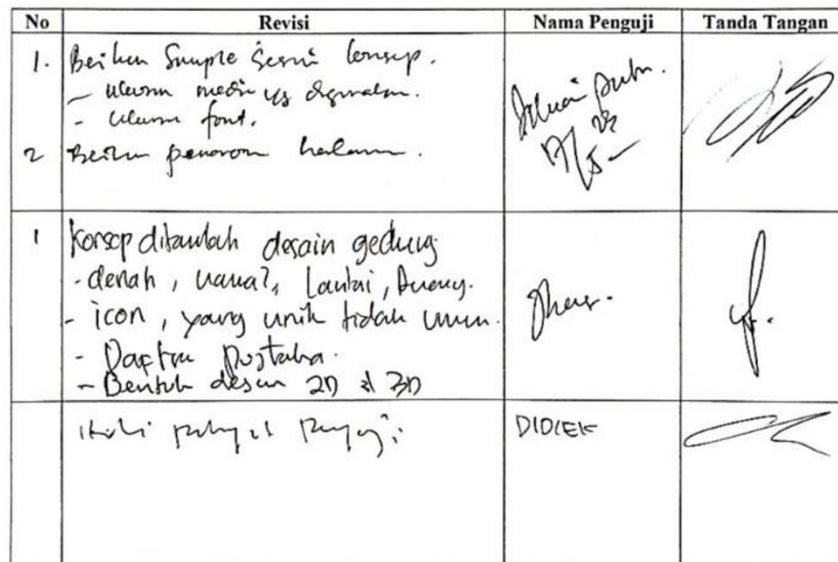 No Revisi Nama Penguji Tanda Tangan
1. Berikan Sample sesuai konsep.
- ukuran media yg digunakan.
- ukuran font.
2 Berikan halaman.
1 Konsep ditambah desain gedung
- denah, Lantai, Ruang.
- icon, yang unik tidak umum.
- Daftar Pustaka.
- Bentuk desain 2D 3D
DIDIEK